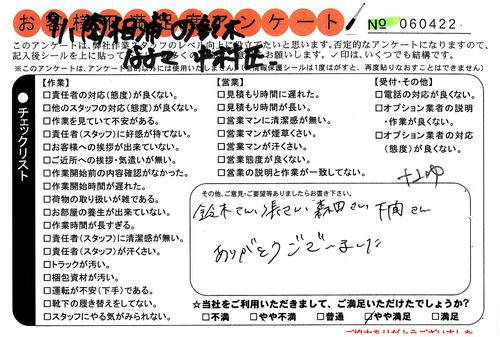 お客様満足度アンケート！
No 060422
このアンケートは、弊社作業スタッフのレベル向上に役立てたいと思います。否定的なアンケートになりますので、
【作業】
□責任者の対応(態度)が良くない。
□他のスタッフの対応(態度)が良くない。
□作業を見ていて不安がある。
□責任者(スタッフ)に好感が持てない。
□お客様への挨拶が出来ていない。
□ご近所への挨拶・気遣いが無い。
□作業開始前の内容確認がなかった。
□作業開始時間が遅れた。
□荷物の取り扱いが雑である。
□お部屋の養生が出来ていない。
□作業時間が長すぎる。
□責任者(スタッフ)に清潔感が無い。
□責任者(スタッフ)が汗くさい。
□トラックが汚い。
□梱包資材が汚い。
□運転が不安(下手)である。
□靴下の履き替えをしてない。
□スタッフにやる気がみられない。
【営業】
□見積もり時間に遅れた。
□見積もり時間が長い。
□営業マンに清潔感が無い。
□営業マンが煙草くさい。
□営業マンが汗くさい。
□営業態度が良くない。
□営業の説明と作業が一致してない。
【受付・その他】
□電話の対応が良くない。
□オプション業者の説明
・作業が良くない。
□オプション業者の対応
(態度)が良くない。
●チェックリスト
その他、ご意見・ご要望等ありましたらお書き下さい。
鈴木さん 張さい 森田さん 下間さん
ありがとうございました
☆当社をご利用いただきまして、ご満足いただけたでしょうか?
□不満 □やや不満 □普通 □やや満足 □満足
ご協力ありがとうございました